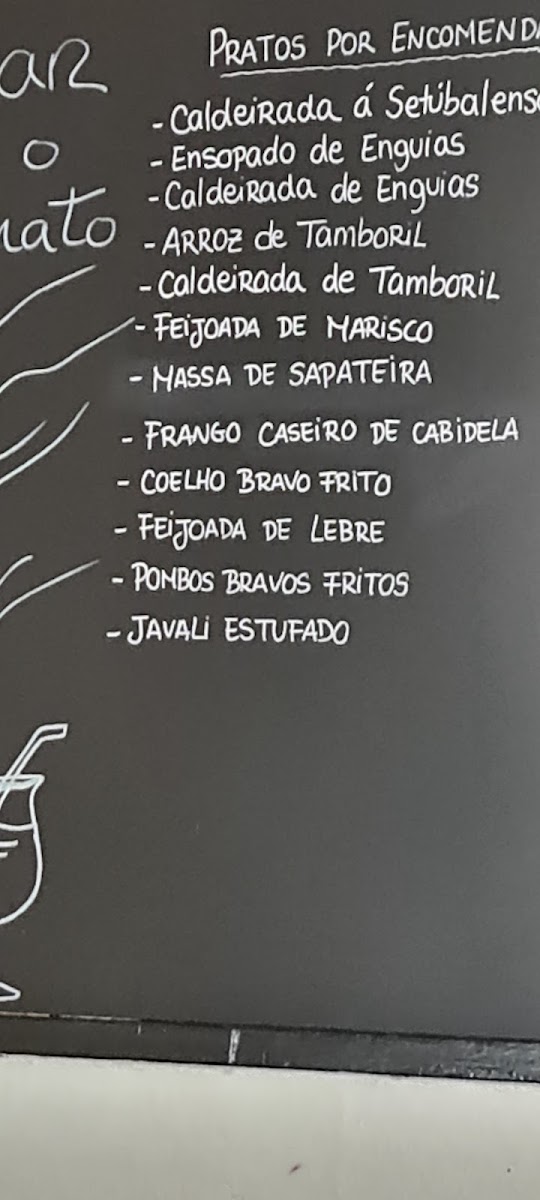 PRATOS POR ENCOMENDA
- Caldeirada á Setúbalense
- Ensopado de Enguias
- Caldeirada de Enguias
- ARROZ de TamboRiL
- Caldeirada de TamboRiL
- FEIJOADA DE MARISCO
- MASSA DE SAPATEIRA
- FRANGO CASEIRO DE CABIDELA
- COELHO BRAVO FRITO
- FEIJOADA DE LEBRE
- POMBOS BRAVOS FRITOS
- JAVALI ESTUFADO
o